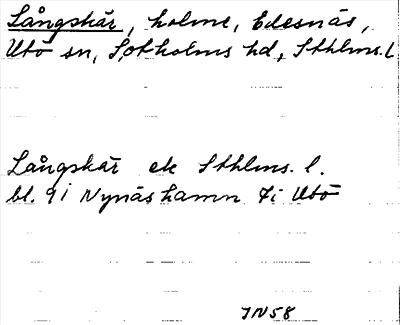 Långskär, holme, Edesnäs,
Utö sn, Sotholms hd, Sthlms. L
Långskär ek Sthlms. l.
bl. 9i Nynäshamn 7i Utö
JN58